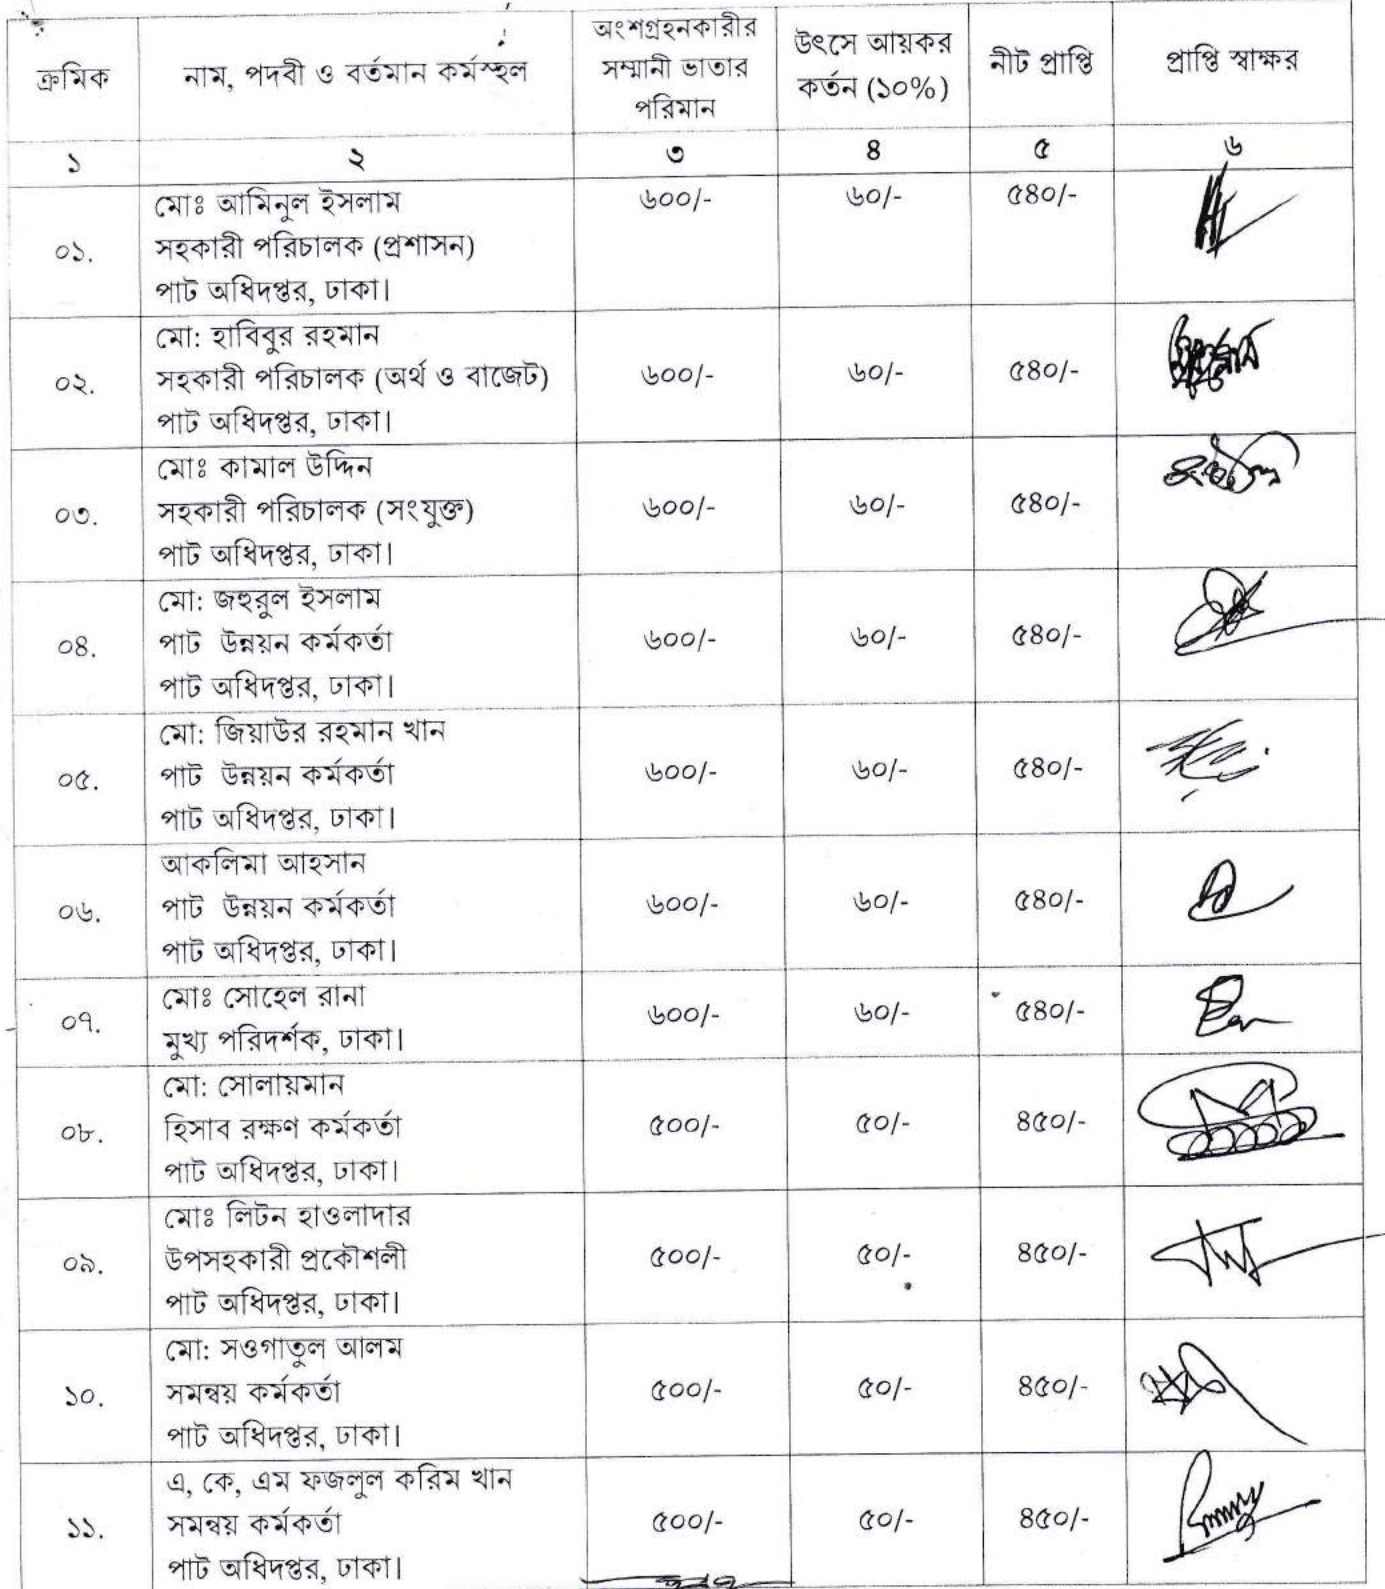 ক্রমিক
নাম, পদবী ও বর্তমান কর্মস্হল
অংশগ্রহনকারীর
সম্মানী ভাতার
পরিমান
উৎসে আয়কর
কর্তন (১০%)
নীট প্রাপ্তি
প্রাপ্তি স্বাক্ষর
১ ২ ৩ ৪ ৫ ৬
মোঃ আমিনুল ইসলাম
সহকারী পরিচালক (প্রশাসন)
পাট অধিদপ্তর, ঢাকা।
০১. ৬০০/- ৬০/- ৫৪০/-
মো: হাবিবুর রহমান
সহকারী পরিচালক (অর্থ ও বাজেট)
পাট অধিদপ্তর, ঢাকা।
০২. ৬০০/- ৬০/- ৫৪০/-
মোঃ কামাল উদ্দিন
সহকারী পরিচালক (সংযুক্ত)
পাট অধিদপ্তর, ঢাকা।
০৩. ৬০০/- ৬০/- ৫৪০/-
মো: জহুরুল ইসলাম
পাট উন্নয়ন কর্মকর্তা
পাট অধিদপ্তর, ঢাকা।
০৪. ৬০০/- ৬০/- ৫৪০/-
মো: জিয়াউর রহমান খান
পাট উন্নয়ন কর্মকর্তা
পাট অধিদপ্তর, ঢাকা।
০৫. ৬০০/- ৬০/- ৫৪০/-
আকলিমা আহসান
পাট উন্নয়ন কর্মকর্তা
পাট অধিদপ্তর, ঢাকা।
০৬. ৬০০/- ৬০/- ৫৪০/-
মোঃ সোহেল রানা
মুখ্য পরিদর্শক, ঢাকা।
০৭. ৬০০/- ৬০/- ৫৪০/-
মো: সোলায়মান
হিসাব রক্ষণ কর্মকর্তা
পাট অধিদপ্তর, ঢাকা।
০৮. ৫০০/- ৫০/- ৪৫০/-
মোঃ লিটন হাওলাদার
উপসহকারী প্রকৌশলী
পাট অধিদপ্তর, ঢাকা।
০৯. ৫০০/- ৫০/- ৪৫০/-
মো: সওগাতুল আলম
সমন্বয় কর্মকর্তা
পাট অধিদপ্তর, ঢাকা।
১০. ৫০০/- ৫০/- ৪৫০/-
এ, কে, এম ফজলুল করিম খান
সমন্বয় কর্মকর্তা
পাট অধিদপ্তর, ঢাকা।
১১. ৫০০/- ৫০/- ৪৫০/-